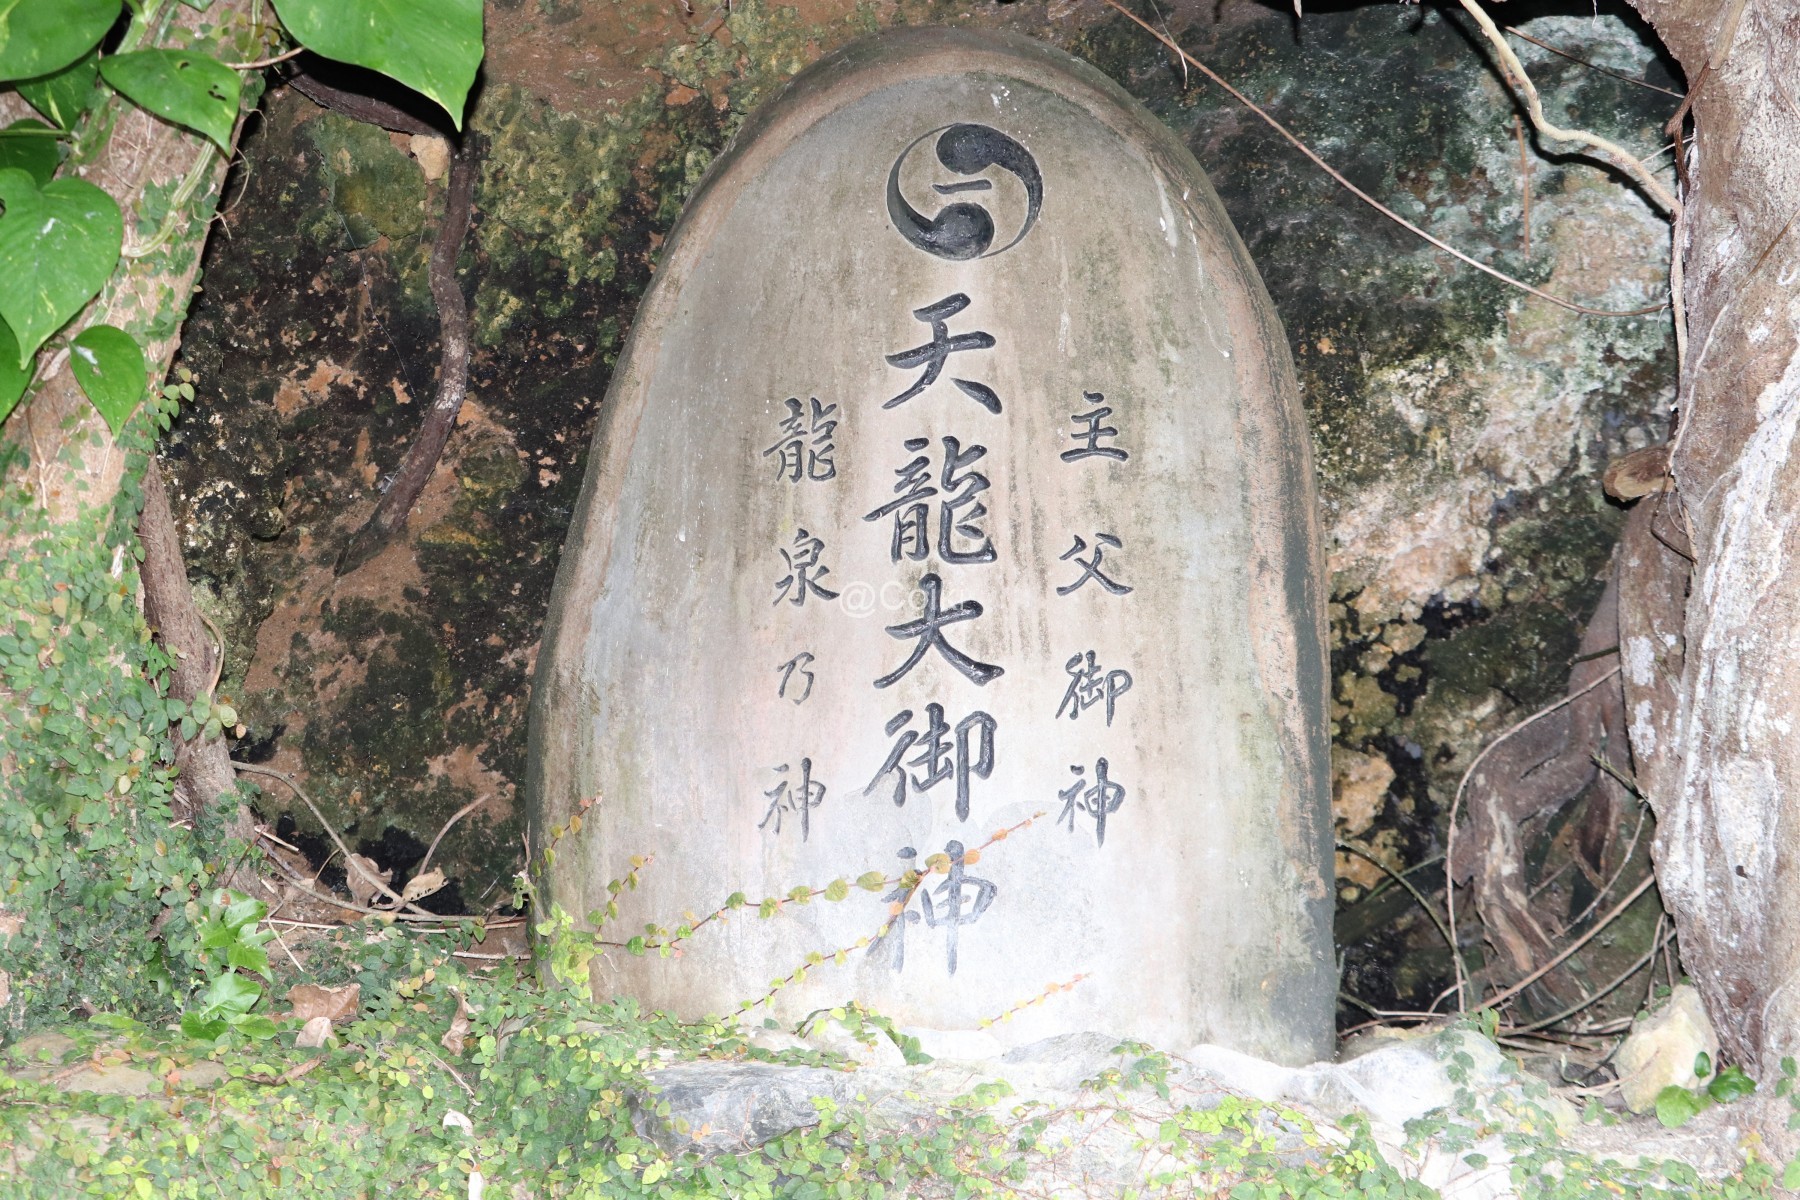 一
主父御神
天龍大御神
龍泉乃神